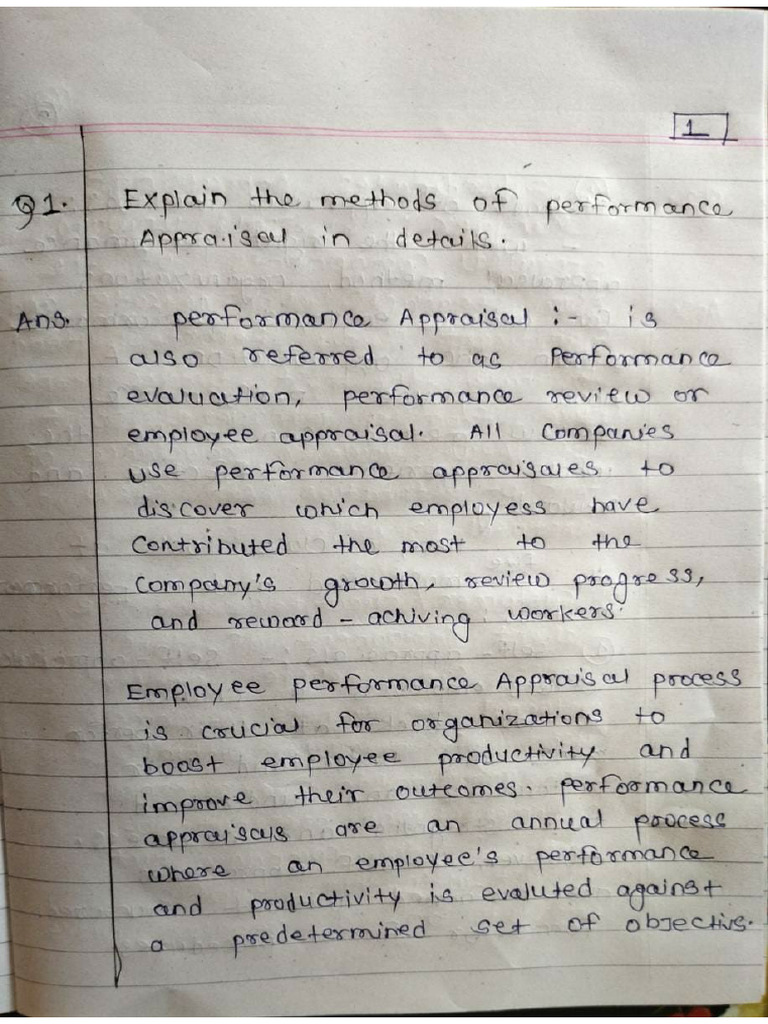 1
Q1. Explain the methods of performance
Appraisal in details.
Ans. performance Appraisal :- is
also referred to as Performance
evaluation, performance review or
employee appraisal. All Companies
use performance appraisales to
discover which employess have
contributed the most to the
Company's growth, review progress,
and reword - achiving workers.
Employee performance Appraisal process
is crucial for organizations to
boost employee productivity and
improve their outcomes. performance
appraisals are an annual process
where an employee's performance
and productivity is evaluted against
a predetermined set of objectivs.